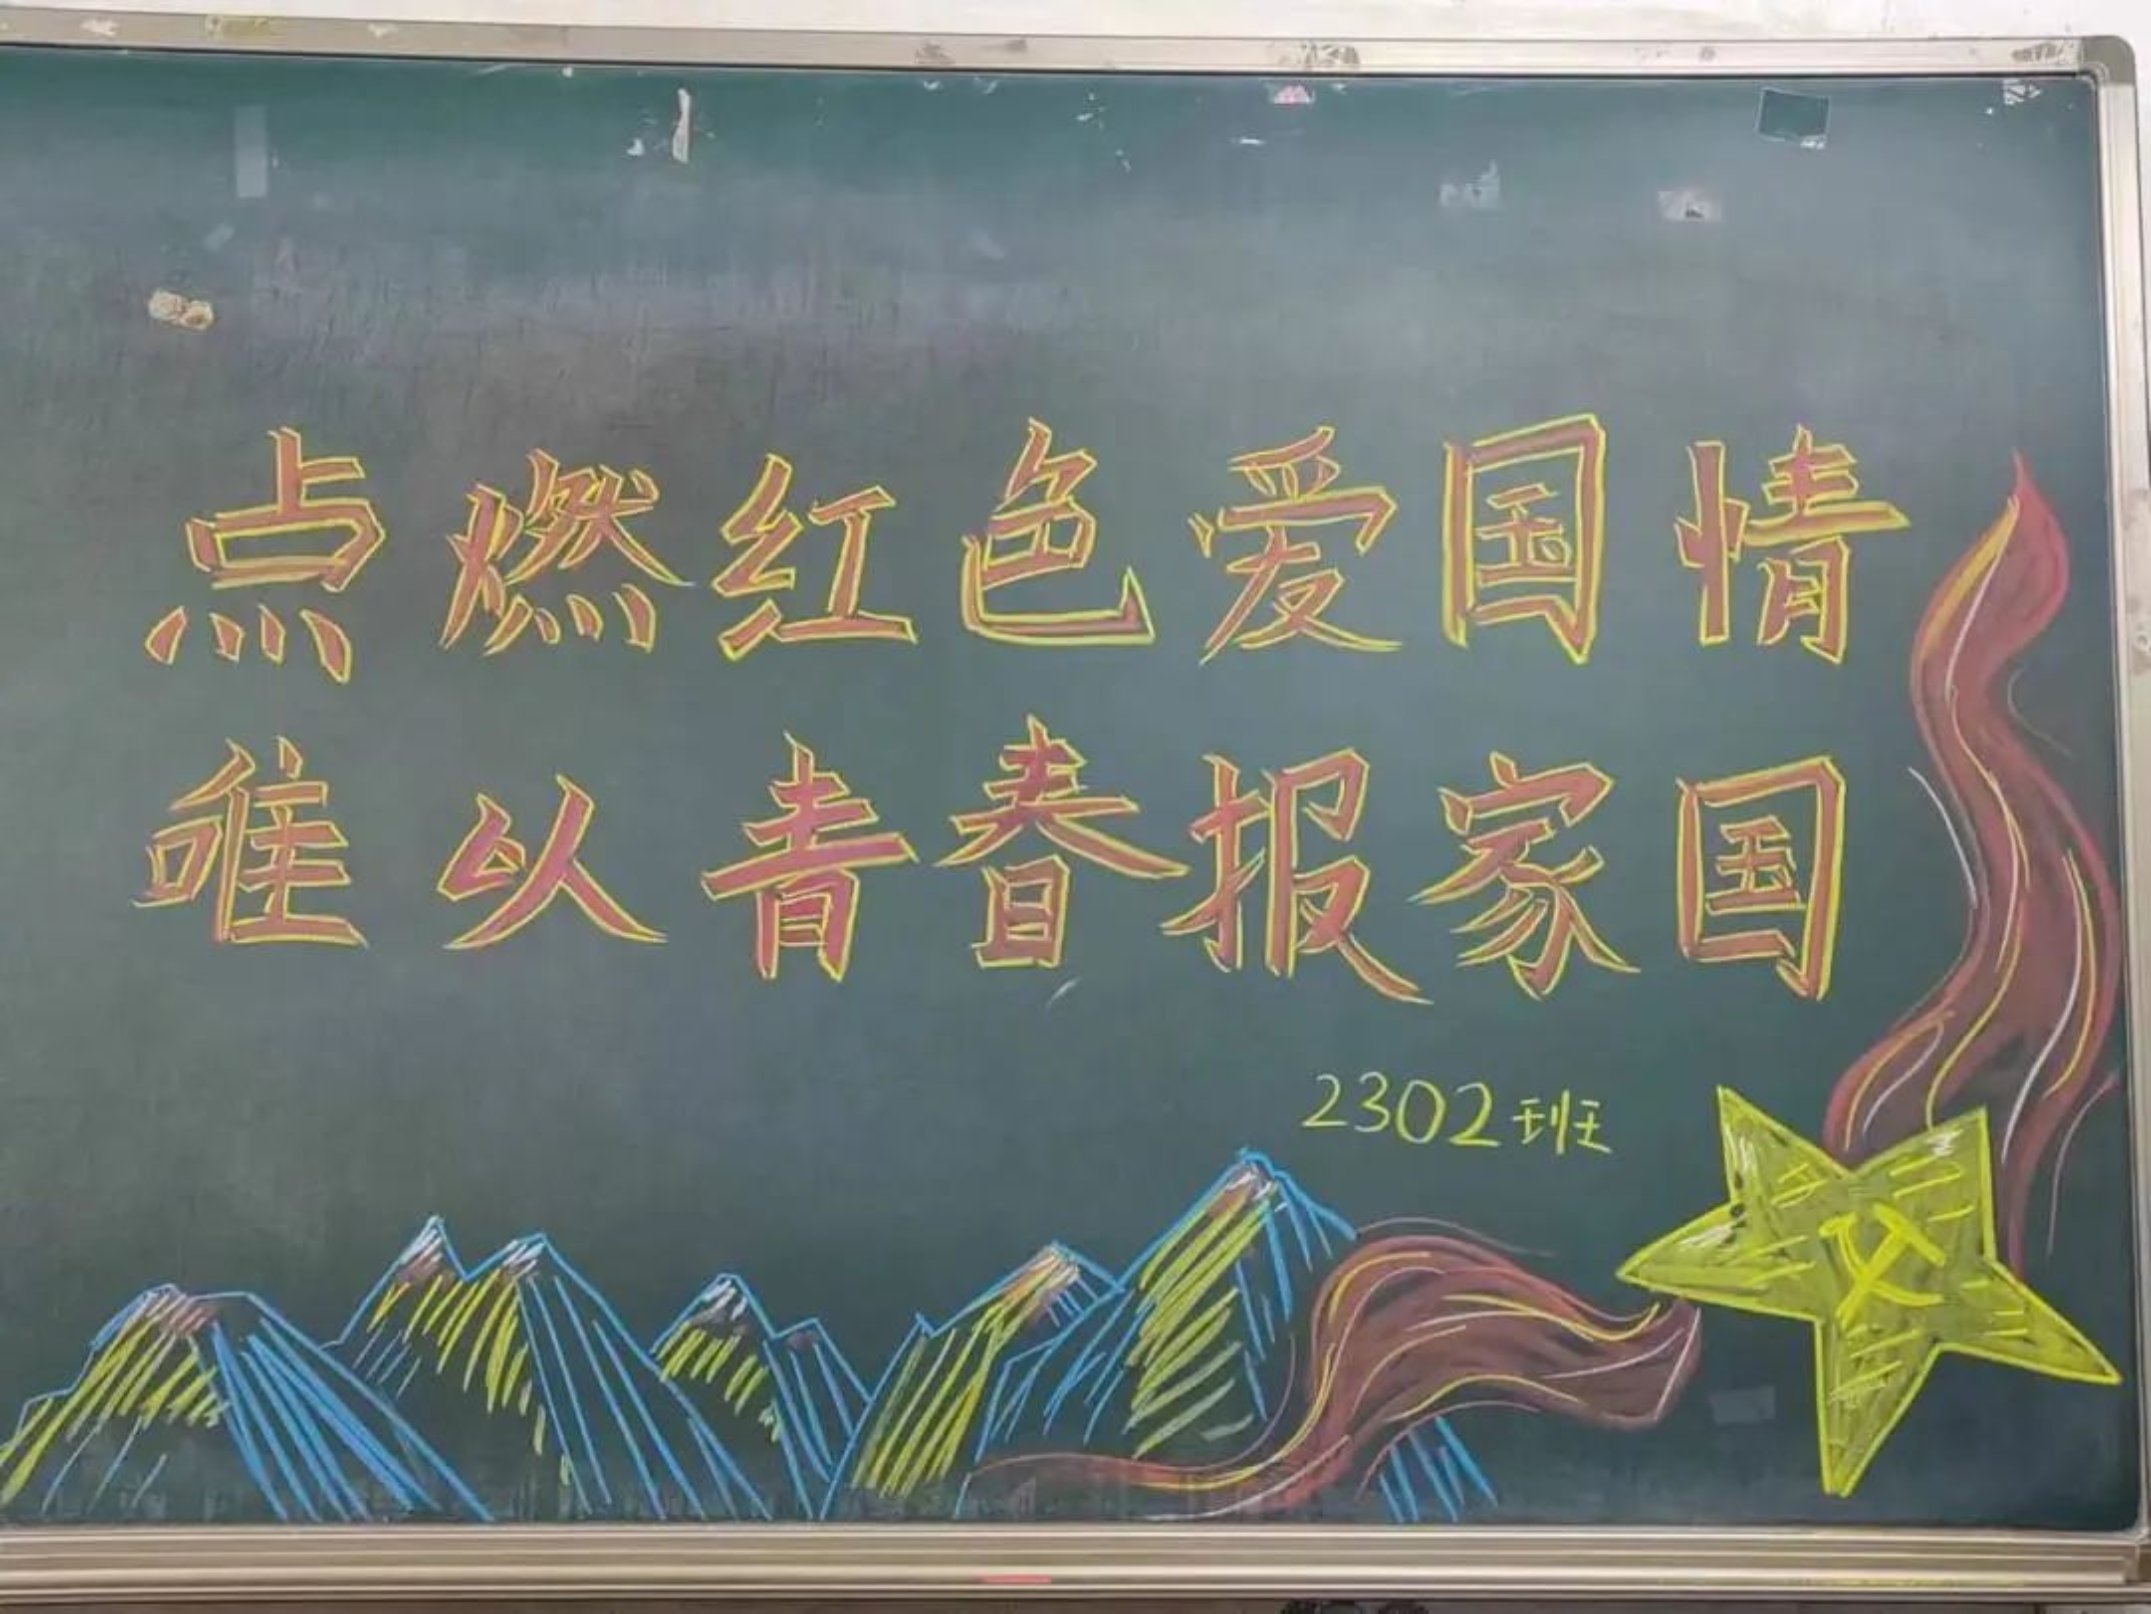 点燃红色爱国情
唯以青春报家国
2302班